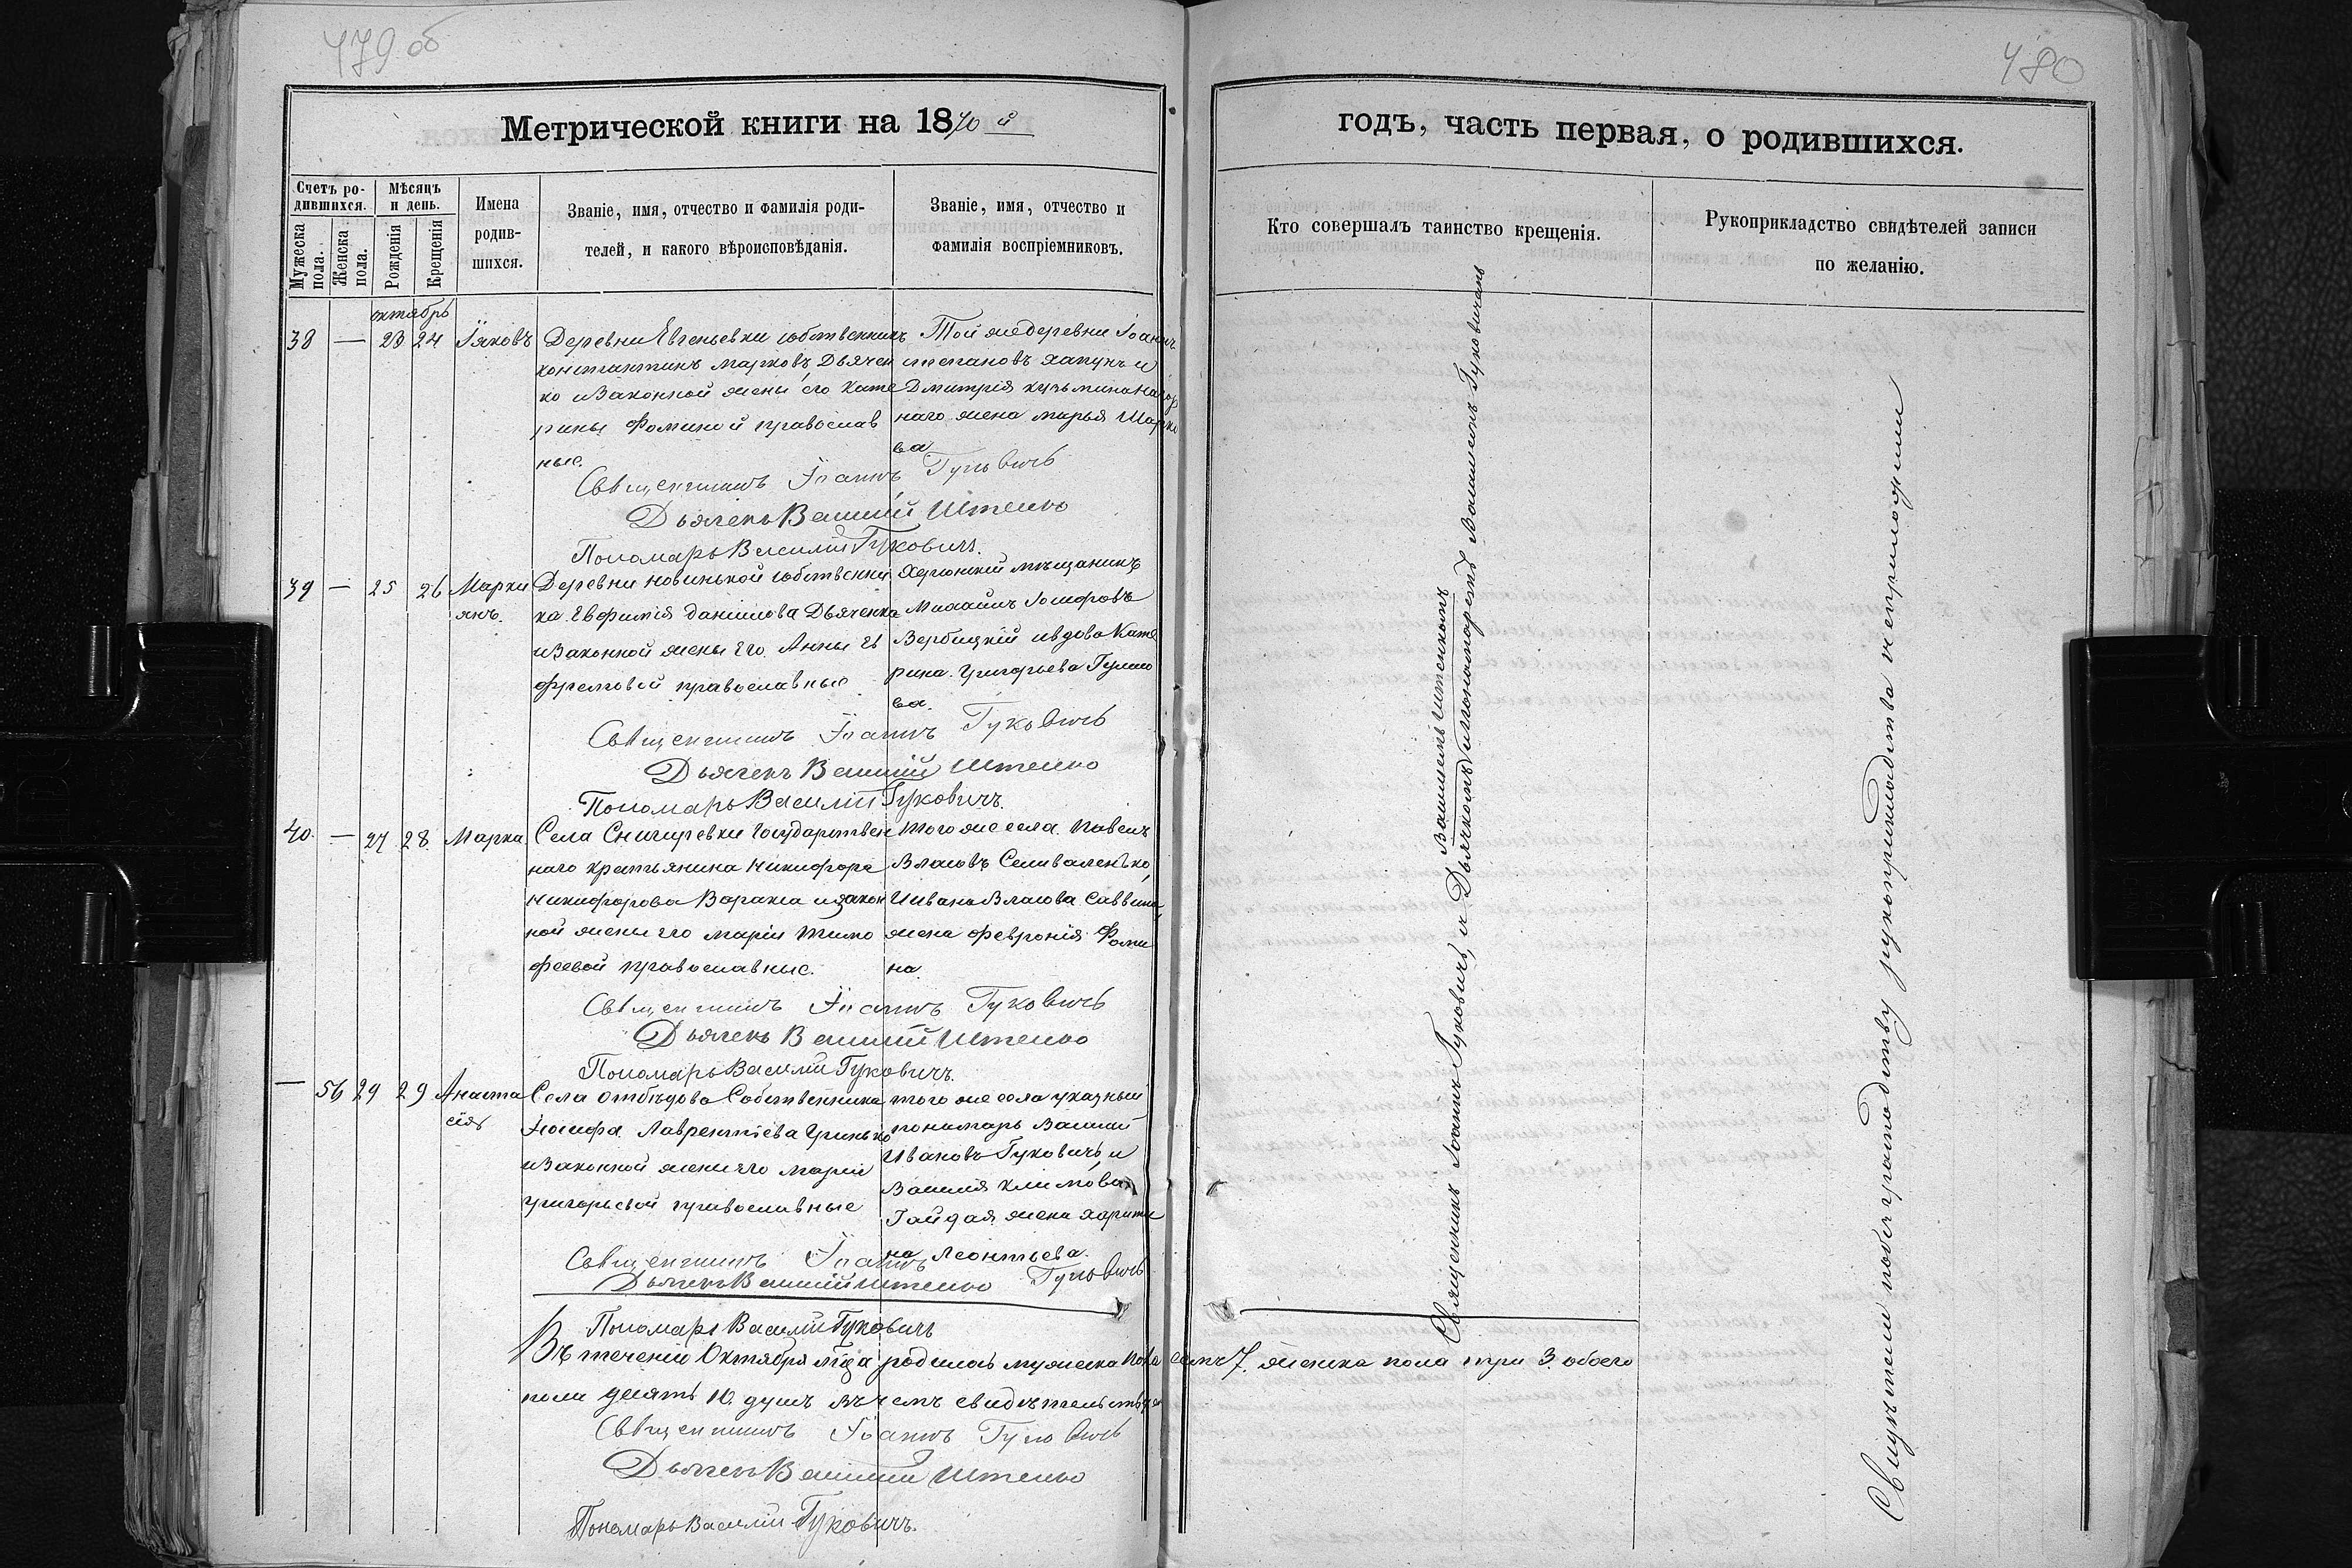 479 об
Метрической книги на 1870 й
Счетъ ро-
дившихся.
Мужеска
пола.
Женска
пола.
Мѣсяцъ
и день.
Рожденія
Крещенія
Имена
родив-
шихся.
Званіе, имя, отчество и фамилія роди-
телей, и какого вѣроисповѣданія.
Званіе, имя, отчество и
фамилія воспріемниковъ.
октябрь
38 — 23 24 Іяковъ
Деревни Евгеньевки собственникъ
константинъ марковъ Дьячен
ко и Законной жены его Кате
рины Фоминой православ
ные.
Той же деревни Іоаннъ
степановъ хапунъ и
Дмитрія кузьмина Нагор
наго жена марья Марко
ва
Священникъ Іоаннъ Гуковичъ
Дьячекъ Василій Штенко
Пономарь Василій Гуковичъ.
39 — 25 26 Марки
янъ.
Деревни новинькой собственни
ка Евфимія даніилова Дьяченка
и Законной жены Его Анны Ев
фремовой православные
Херсонскій мѣщанинъ
Михаилъ Іосифовъ
Вербицкій и вдова Кате
рина Григорьева
ва.
Священникъ Іоаннъ Гуковичъ
Дьячекъ Василій Штенко
Пономарь Василій Гуковичъ.
40. — 27 28. Марка
Села Снигиревки государствен
наго крестьянина Никифора
Никифорова Варакса и закон
ной жены его маріи тимо
феевой православные.
того же села Павелъ
Власовъ Селиваленко,
и ивана Власова Саввина,
жена феврония Фоми
на.
Священникъ Іоаннъ Гуковичъ
Дьячекъ Василій Штенко
Пономарь Василій Гуковичъ.
— 56 29 29 Анаста
сія
Села отбѣдова Собственника
Іосифа Лаврентіева Гринько
и Законной жены его маріи
григорьевой православные
того же села указный
пономарь Василій
Ивановъ Гуковичъ и
Василія климова
Гайдая жена харити
на Леонтьева.
Священникъ Іоаннъ Гуковичъ
Дьячекъ Василій Штенко
Пономарь Василій Гуковичъ
Въ теченіи Октября мца родилось мужеска пола семъ 7. женска пола три 3. обоего
пола десять 10. душъ въ чемъ свидѣтельствуемъ
Священникъ Іоаннъ Гуковичъ
Дьячекъ Василій Штенко
Пономарь Василій Гуковичъ.
480
годъ, часть первая, о родившихся.
Кто совершалъ таинство крещенія.
Рукоприкладство свидѣтелей записи
по желанію.
Священникъ Іоаннъ Гуковичъ, и Дьячкомъ Василіемъ Штенкомъ
и пономаремъ Василіемъ Гуковичемъ
Свидѣтели по безграмотству рукоприкладства не приложили